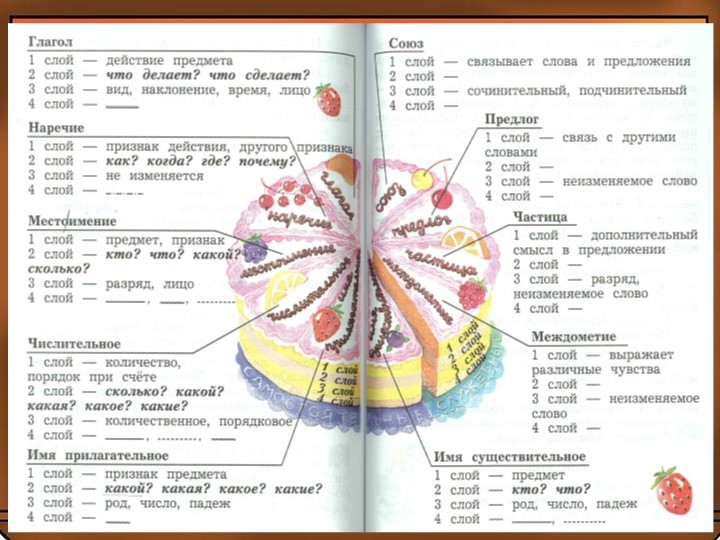 Глагол
1 слой — действие предмета
2 слой — что делает? что сделает?
3 слой — вид, наклонение, время, лицо
4 слой —
Наречие
1 слой — признак действия, другого признака
2 слой — как? когда? где? почему?
3 слой — не изменяется
4 слой —
Местоимение
1 слой — предмет, признак
2 слой — кто? что? какой?
сколько?
3 слой — разряд, лицо
4 слой — , ,
Числительное
1 слой — количество,
порядок при счёте
2 слой — сколько? какой?
какая? какое? какие?
3 слой — количественное, порядковое
4 слой — , ,
Имя прилагательное
1 слой — признак предмета
2 слой — какой? какая? какое? какие?
3 слой — род, число, падеж
4 слой —
глагол
наречие
местоимение
числительное
1 слой
2 слой
3 слой
4 слой
САМОСТОЯТЕЛЬНЫЕ
Союз
1 слой — связывает слова и предложения
2 слой —
3 слой — сочинительный, подчинительный
4 слой —
Предлог
1 слой — связь с другими
словами
2 слой —
3 слой — неизменяемое слово
4 слой —
Частица
1 слой — дополнительный
смысл в предложении
2 слой —
3 слой — разряд,
неизменяемое слово
4 слой —
Междометие
1 слой — выражает
различные чувства
2 слой —
3 слой — неизменяемое
слово
4 слой —
Имя существительное
1 слой — предмет
2 слой — кто? что?
3 слой — род, число, падеж
4 слой — ,
союз
предлог
частица
междометие
1 слой
2 слой
3 слой
4 слой
СЛУЖЕБНЫЕ